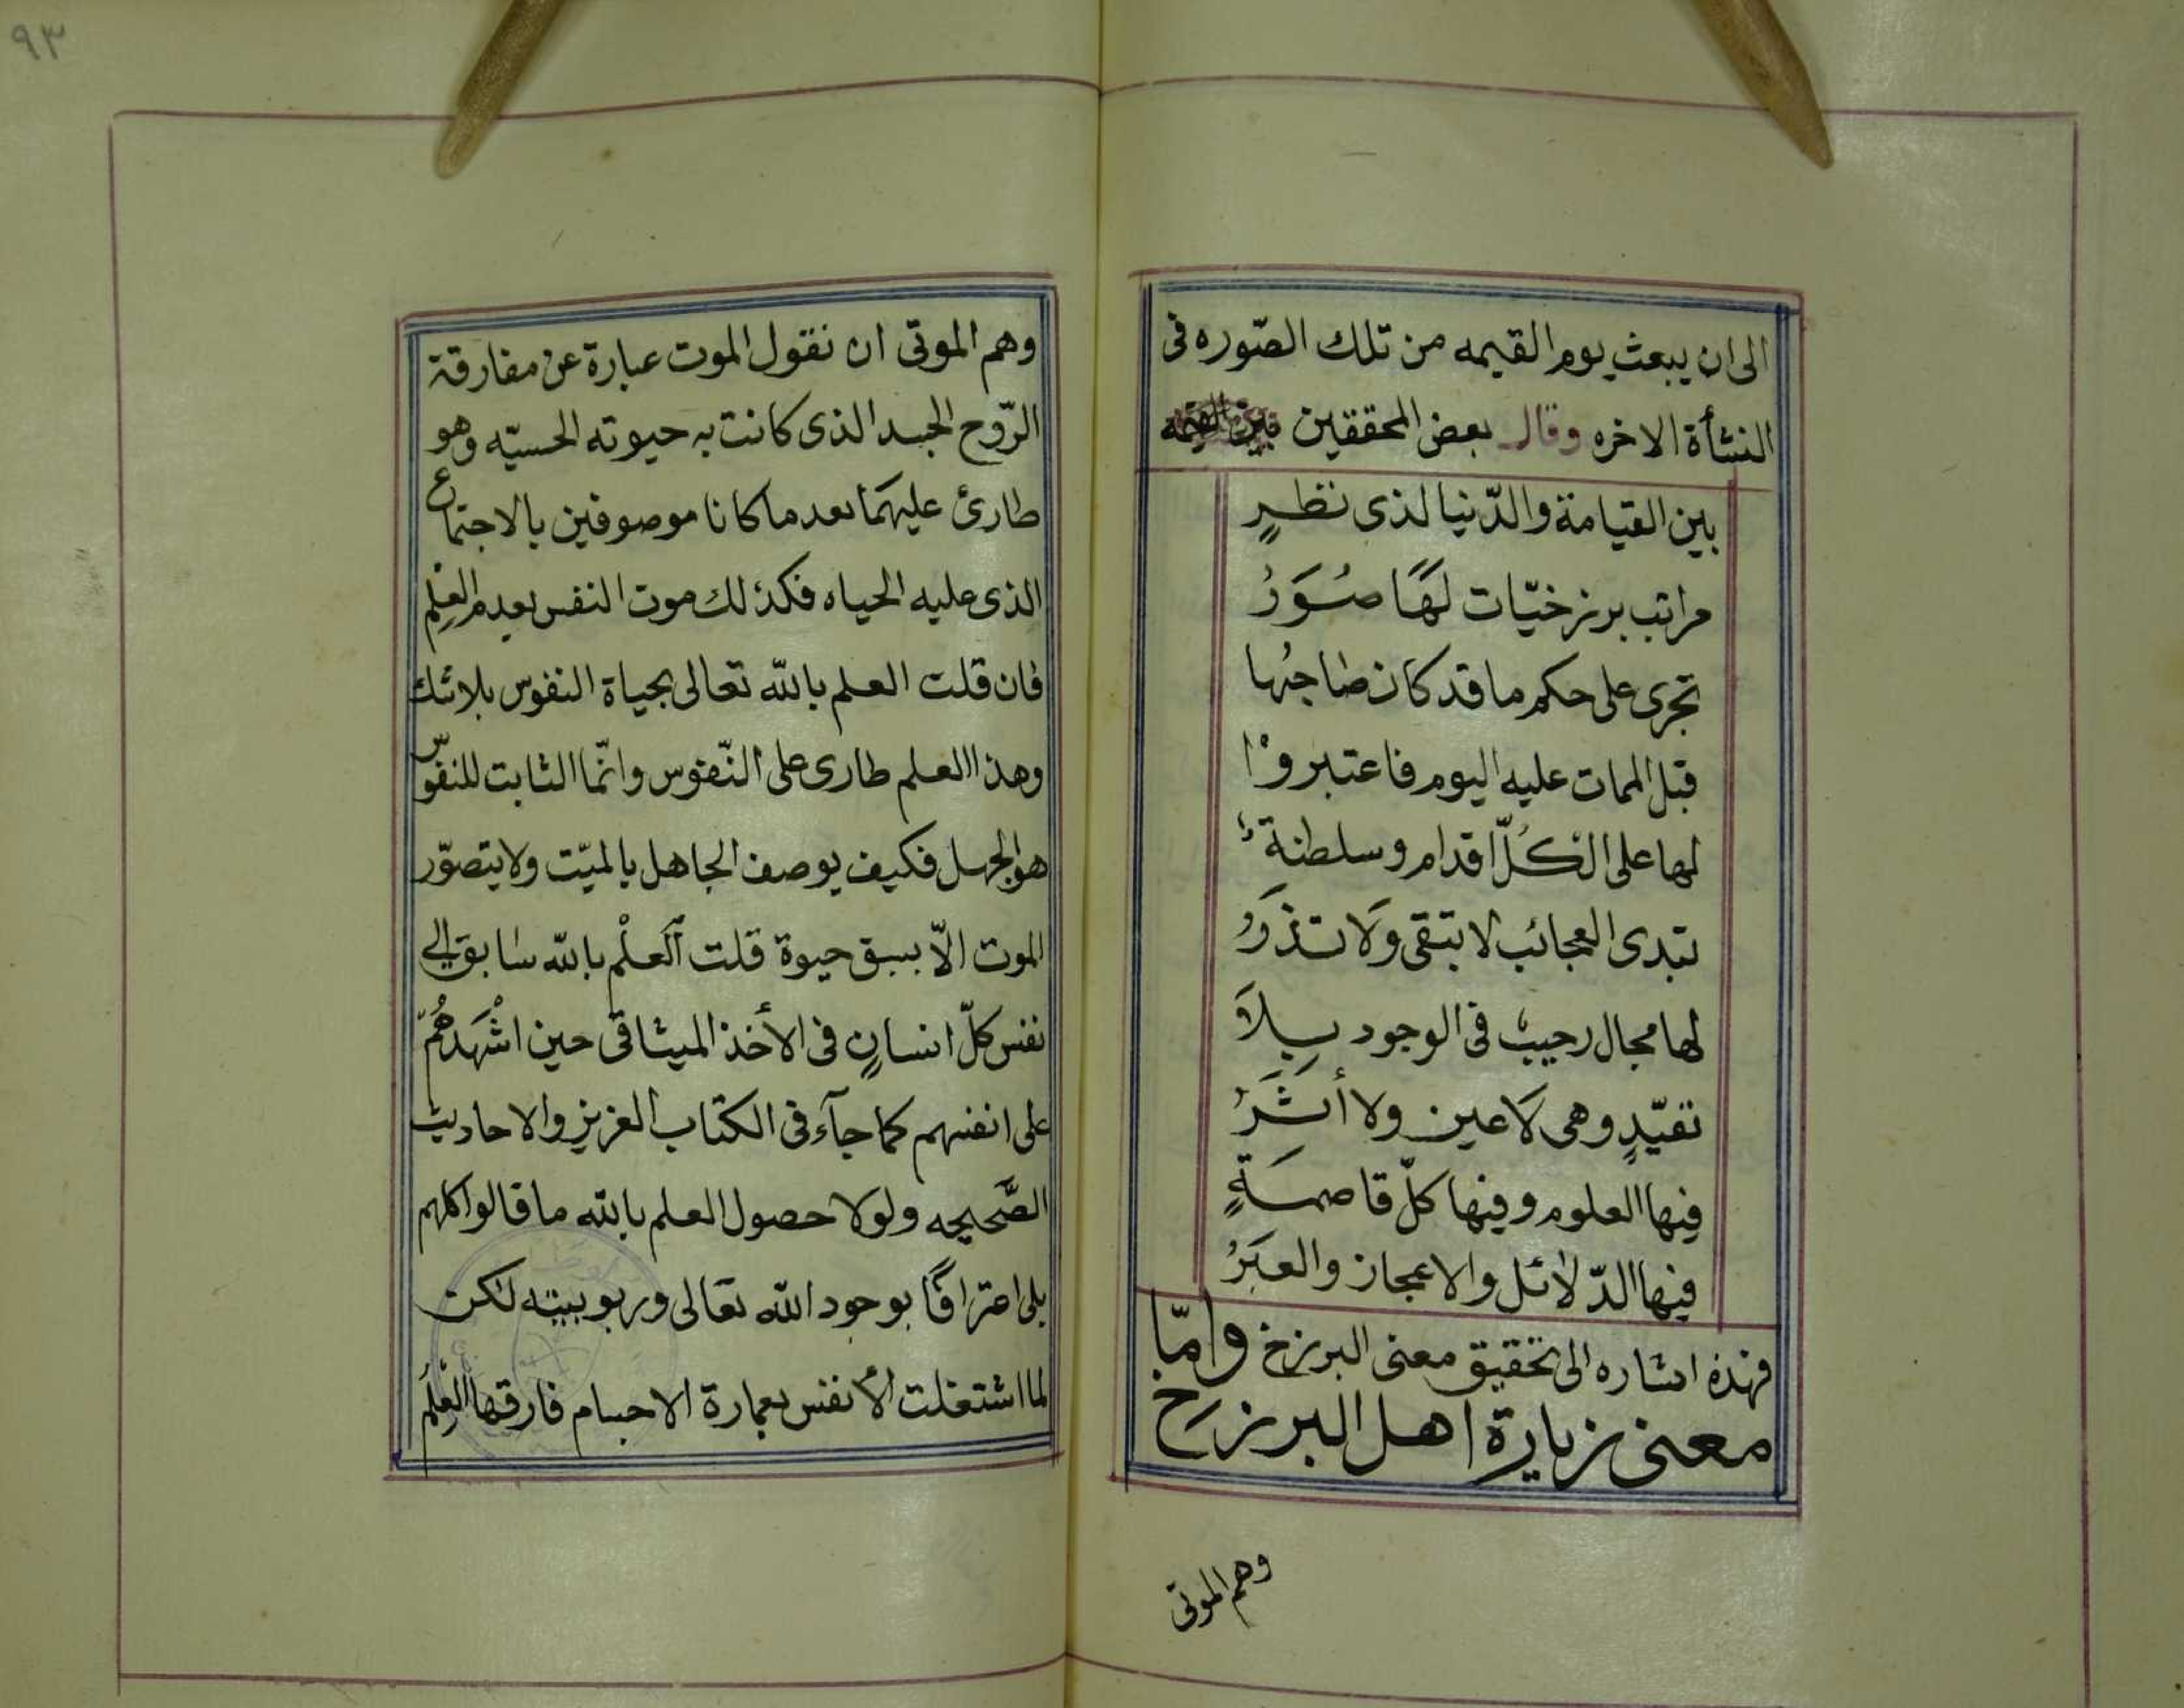 ٩٣
الى ان يبعث يوم القيمه من تلك الصّوره فى
النشأة الاخره وقال بعض المحققين
بين القيامة والدّنيا لذى نظرٍ
مراتب برزخيّات لَهَا صُوَرُ
تجرى على حكم ما قد كان صاحبُها
قبل الممات عليه اليوم فاعتبروْا
لها على الكُلّ اقدام وسلطنة
تبدى العجائب لا تبقى وَلَا تذَرُ
لها مجال رحيبٌ فى الوجود بِلَا
تقيّدٍ وهى لَا عين ولا أثَرُ
فيها العلوم وفيها كلّ قاصمَةٍ
فيها الدّلائل والاعجاز والعبَرُ
فهذه اشاره الى تحقيق معنى البرزخ وامّا
معنى زيارة اهل البرزخ
وهم الموتى
وهم الموتى ان نقول الموت عبارة عن مفارقة
الرّوح الجسد الذى كانت به حيوته الحسيّه وهو
طارئ عليهمَا بعد ما كانا موصوفين بالاجتماع
الذى عليه الحياه فكذلك موت النفس بعدم العِلْمِ
فان قلت العلم بالله تعالى بحياة النفوس بلا شك
وهذا العلم طارى على النّفوس وانّما الثابت للنفوس
هو الجهل فكيف يوصف الجاهل بالميّت ولا يتصوّر
الموت الّا بسبق حيوة قلت اَلعلْم بالله سابق الى
نفس كلّ انسانٍ فى الأخذ الميثاقى حين اشْهَدَهُمْ
على انفسهم كما جآء فى الكتاب العزيز والاحاديث
الصَّحيحه ولولا حصول العلم بالله ما قالوا كلهم
بلى اعترافًا بوجود الله تعَالى وربوبيته لكن
لما اشتغلت الأنفس بعمارة الاجسام فارقها العِلْمُ